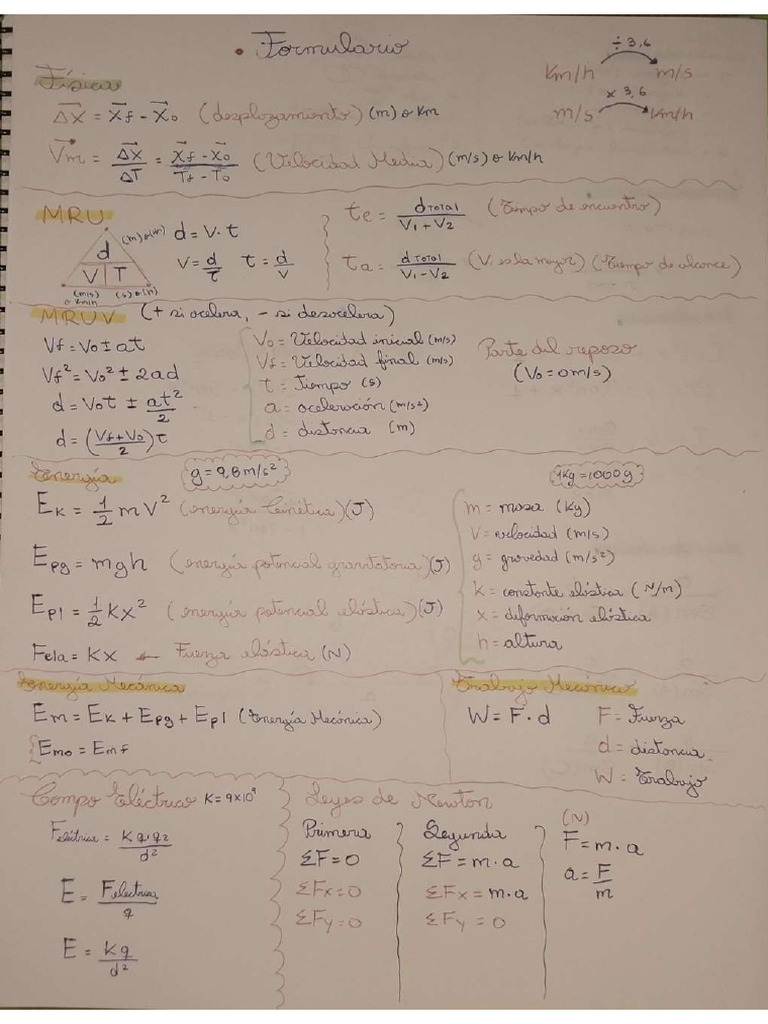 • Formulario
÷ 3,6
Km/h → m/s
x 3,6
m/s → Km/h
Física
ΔX = Xf - Xo (desplazamiento) (m) o Km
Vm = ΔX/ΔT = Xf - Xo/Tf - To (Velocidad Media) (m/s) o Km/h
MRU
d
V T
(m) o (Km)
(m/s) o Km/h
(s) o (h)
d = V · t
V = d/t t = d/V
te = dTOTAL/V1 + V2 (Tiempo de encuentro)
ta = dTOTAL/V1 - V2 (V1 es la mayor) (Tiempo de alcance)
MRUV (+ si acelera, - si desacelera)
Vf = Vo ± at
Vf² = Vo² ± 2ad
d = Vot ± at²/2
d = (Vf + Vo/2) t
Vo = Velocidad inicial (m/s)
Vf = Velocidad final (m/s)
t = Tiempo (s)
a = aceleración (m/s²)
d = distancia (m)
Parte del reposo
(Vo = 0 m/s)
Energía
g = 9,8 m/s²
1Kg = 1000g
Ek = 1/2 m V² (energía Cinética) (J)
Epg = mgh (energía potencial gravitatoria) (J)
Epl = 1/2 Kx² (energía potencial elástica) (J)
Fela = Kx ← Fuerza elástica (N)
m = masa (Kg)
V = velocidad (m/s)
g = gravedad (m/s²)
k = constante elástica (N/m)
x = deformación elástica
h = altura
Energía Mecánica
Em = Ek + Epg + Epl (Energía Mecánica)
{Emo = Emf
Trabajo Mecánico
W = F · d
F = Fuerza
d = distancia
W = Trabajo
Campo Eléctrico K = 9x10⁹
Feléctrica = K q1 q2/d²
E = Feléctrica/q
E = Kq/d²
Leyes de Newton
Primera
ΣF = 0
ΣFx = 0
ΣFy = 0
Segunda
ΣF = m · a
ΣFx = m · a
ΣFy = 0
(N)
F = m · a
a = F/m